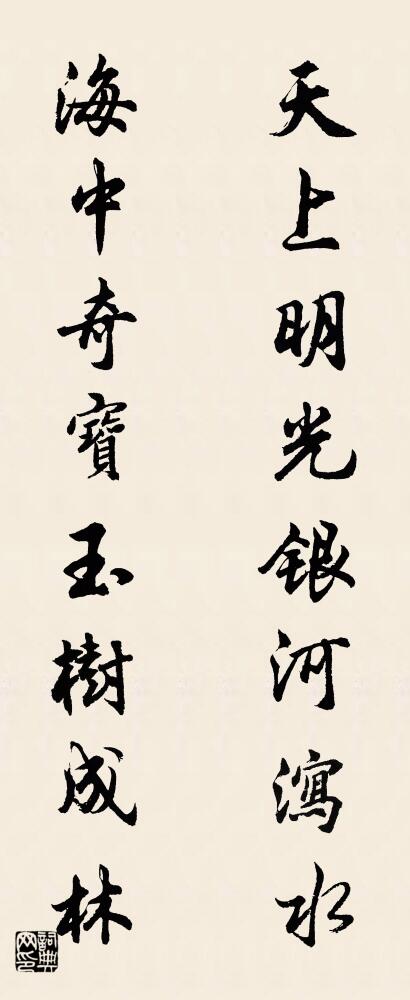 天上明光銀河瀉水
海中奇寶玉樹成林
詞典網印